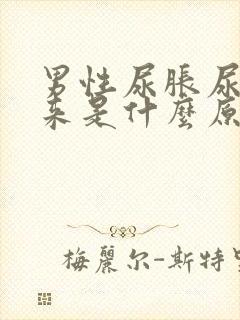 男性尿脹尿
来是什麼原
梅麗尔-斯特